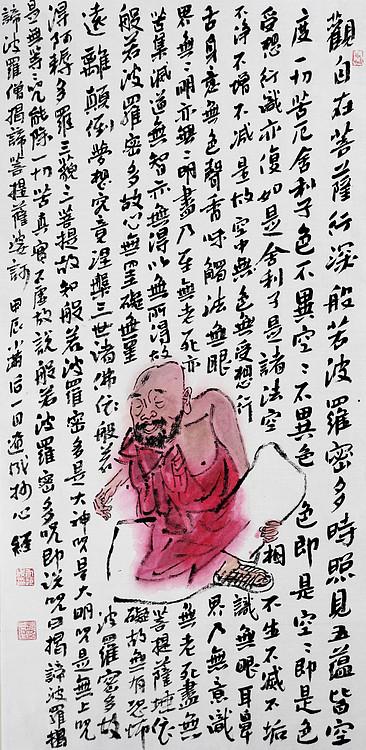 觀自在菩薩行深般若波羅密多時照見五蘊皆空
度一切苦厄舍利子色不異空〻不異色色即是空〻即是色
受想行識亦復如是舍利子是諸法空相不生不滅不垢
不淨不增不減是故空中無色無受想行識無眼耳鼻
舌身意無色聲香味觸法無眼界乃無意識
界無〻明亦無〻明盡乃至無老死亦無老死盡無
苦集滅道無智亦無得以無所得故菩提薩埵依
般若波羅密多故心無罣礙無罣礙故無有恐怖
遠離顛倒夢想究竟涅槃三世諸佛依般若波羅密多故
得阿耨多羅三藐三菩提故知般若波羅密多是大神咒是大明咒是無上咒
是無等〻咒能除一切苦真實不虛故說般若波羅密多咒即說咒曰揭諦波羅揭
諦波羅僧揭諦菩提薩婆訶 甲辰小滿后一日 抄心經